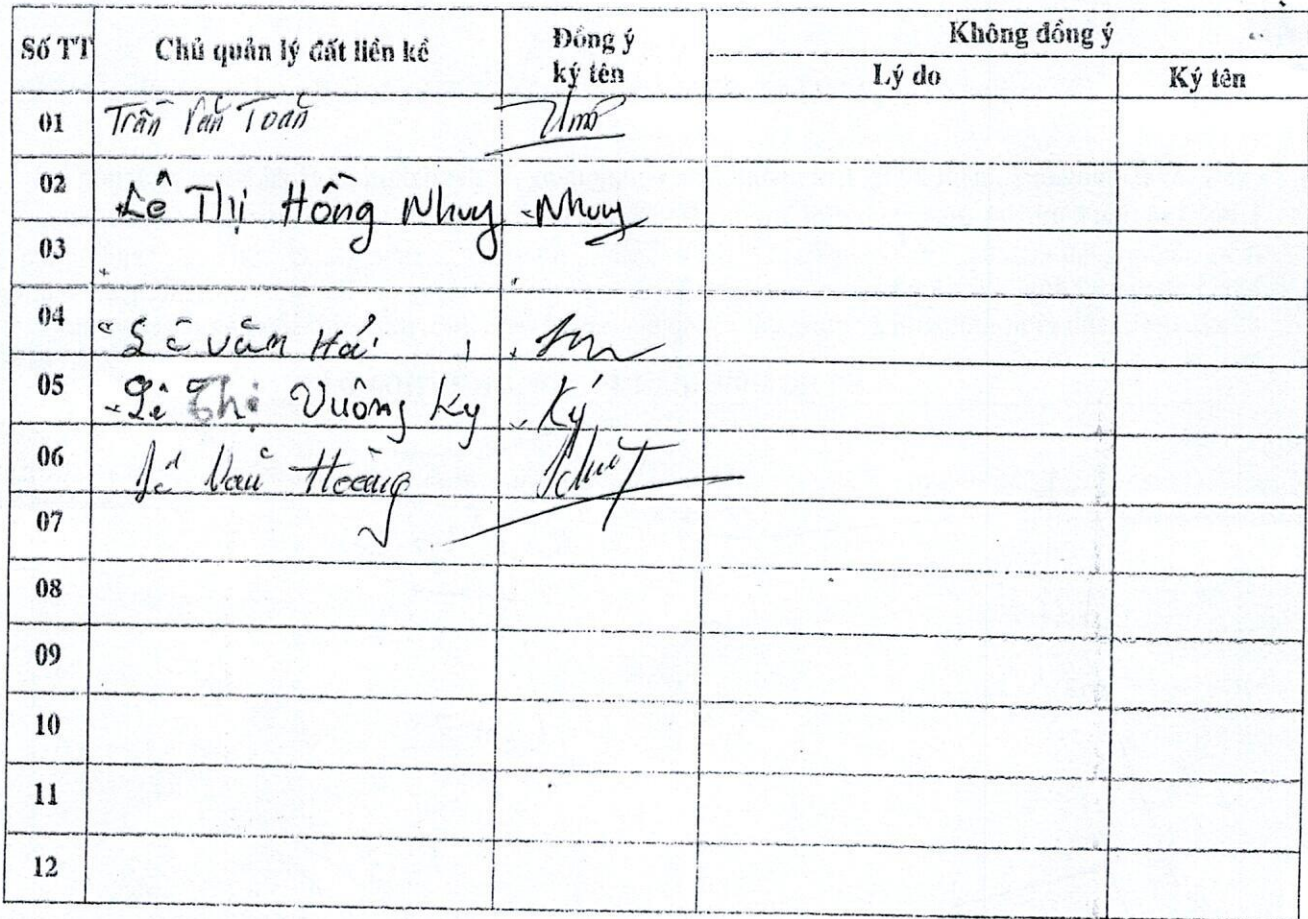 Số TT Chủ quản lý đất liền kề Đồng ý ký tên Không đồng ý
Lý do Ký tên
01 Trần Văn Toàn
02 Lê Thị Hồng Nhuy Nhuy
03
04 Lê Văn Há
05 Lê Thị Vuông Ky Ký
06 Lê Văn Hoàng
07
08
09
10
11
12